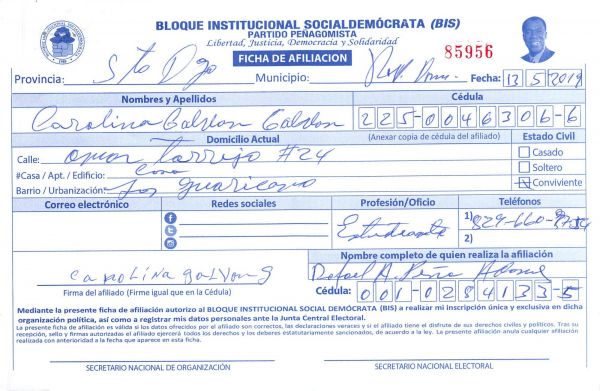 BLOQUE INSTITUCIONAL SOCIALDEMÓCRATA (BIS)
PARTIDO PEÑAGOMISTA
Libertad, Justicia, Democracia y Solidaridad
FICHA DE AFILIACION
85956
Provincia: Sto Dgo Municipio: Fecha: 13 5 2019
Nombres y Apellidos Cédula
Carolina Galvan Galvan 225-0046306-6
Domicilio Actual (Anexar copia de cédula del afiliado) Estado Civil
Calle: omar Torrijo #24 Casado
#Casa / Apt. / Edificio: Casa Soltero
Barrio / Urbanización: Los guaricano Conviviente
Correo electrónico Redes sociales Profesión/Oficio Teléfonos
Estudiante 1) 829-660-
2)
Nombre completo de quien realiza la afiliación
carolina galvan g Rafael A. Peña
Firma del afiliado (Firme igual que en la Cédula) Cédula: 001-0284133-5
Mediante la presente ficha de afiliación autorizo al BLOQUE INSTITUCIONAL SOCIAL DEMÓCRATA (BIS) a realizar mi inscripción única y exclusiva en dicha
organización política, así como a registrar mis datos personales ante la Junta Central Electoral.
La presente ficha de afiliación es válida si los datos ofrecidos por el afiliado son correctos, las declaraciones veraces y si el afiliado tiene el disfrute de sus derechos civiles y políticos. Tras su
recepción, sello y firmas autorizadas el afiliado ejercerá todos los derechos y los deberes estatutariamente sancionados, de acuerdo a la ley. La presente afiliación anula cualquier afiliación
realizada con anterioridad a la fecha que aparece en esta ficha.
SECRETARIO NACIONAL DE ORGANIZACIÓN SECRETARIO NACIONAL ELECTORAL